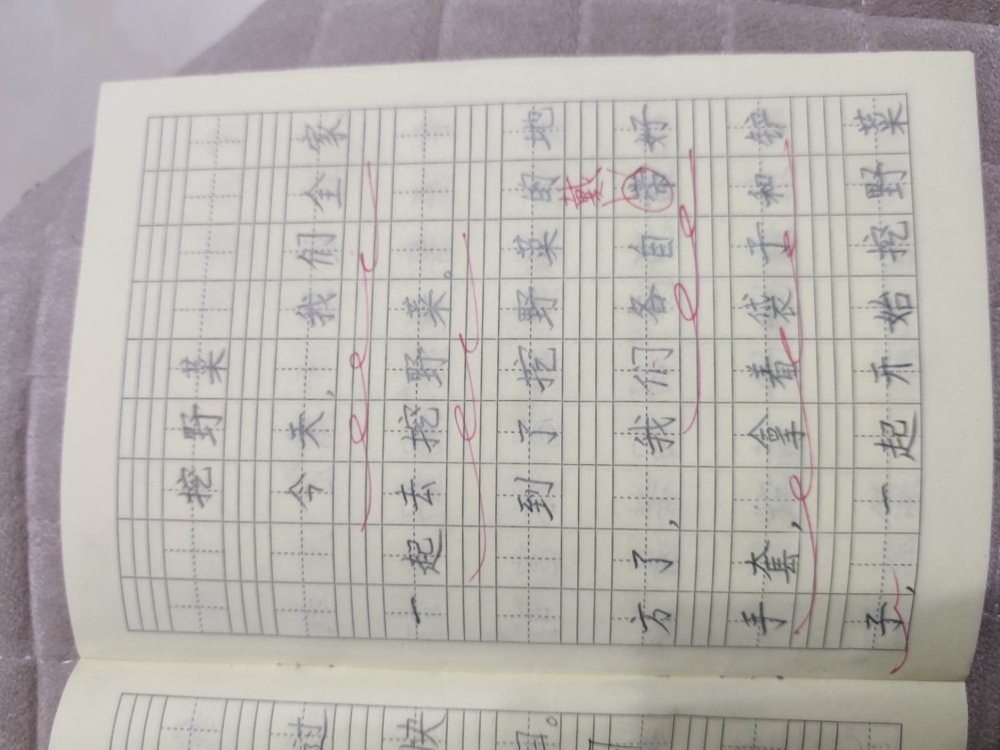 挖野菜
今天,我们全家
一起去挖野菜。
到了挖野菜的地
戴
方了,我们各自带好
手套,拿着袋子和铲
子,一起开始挖野菜
过
快